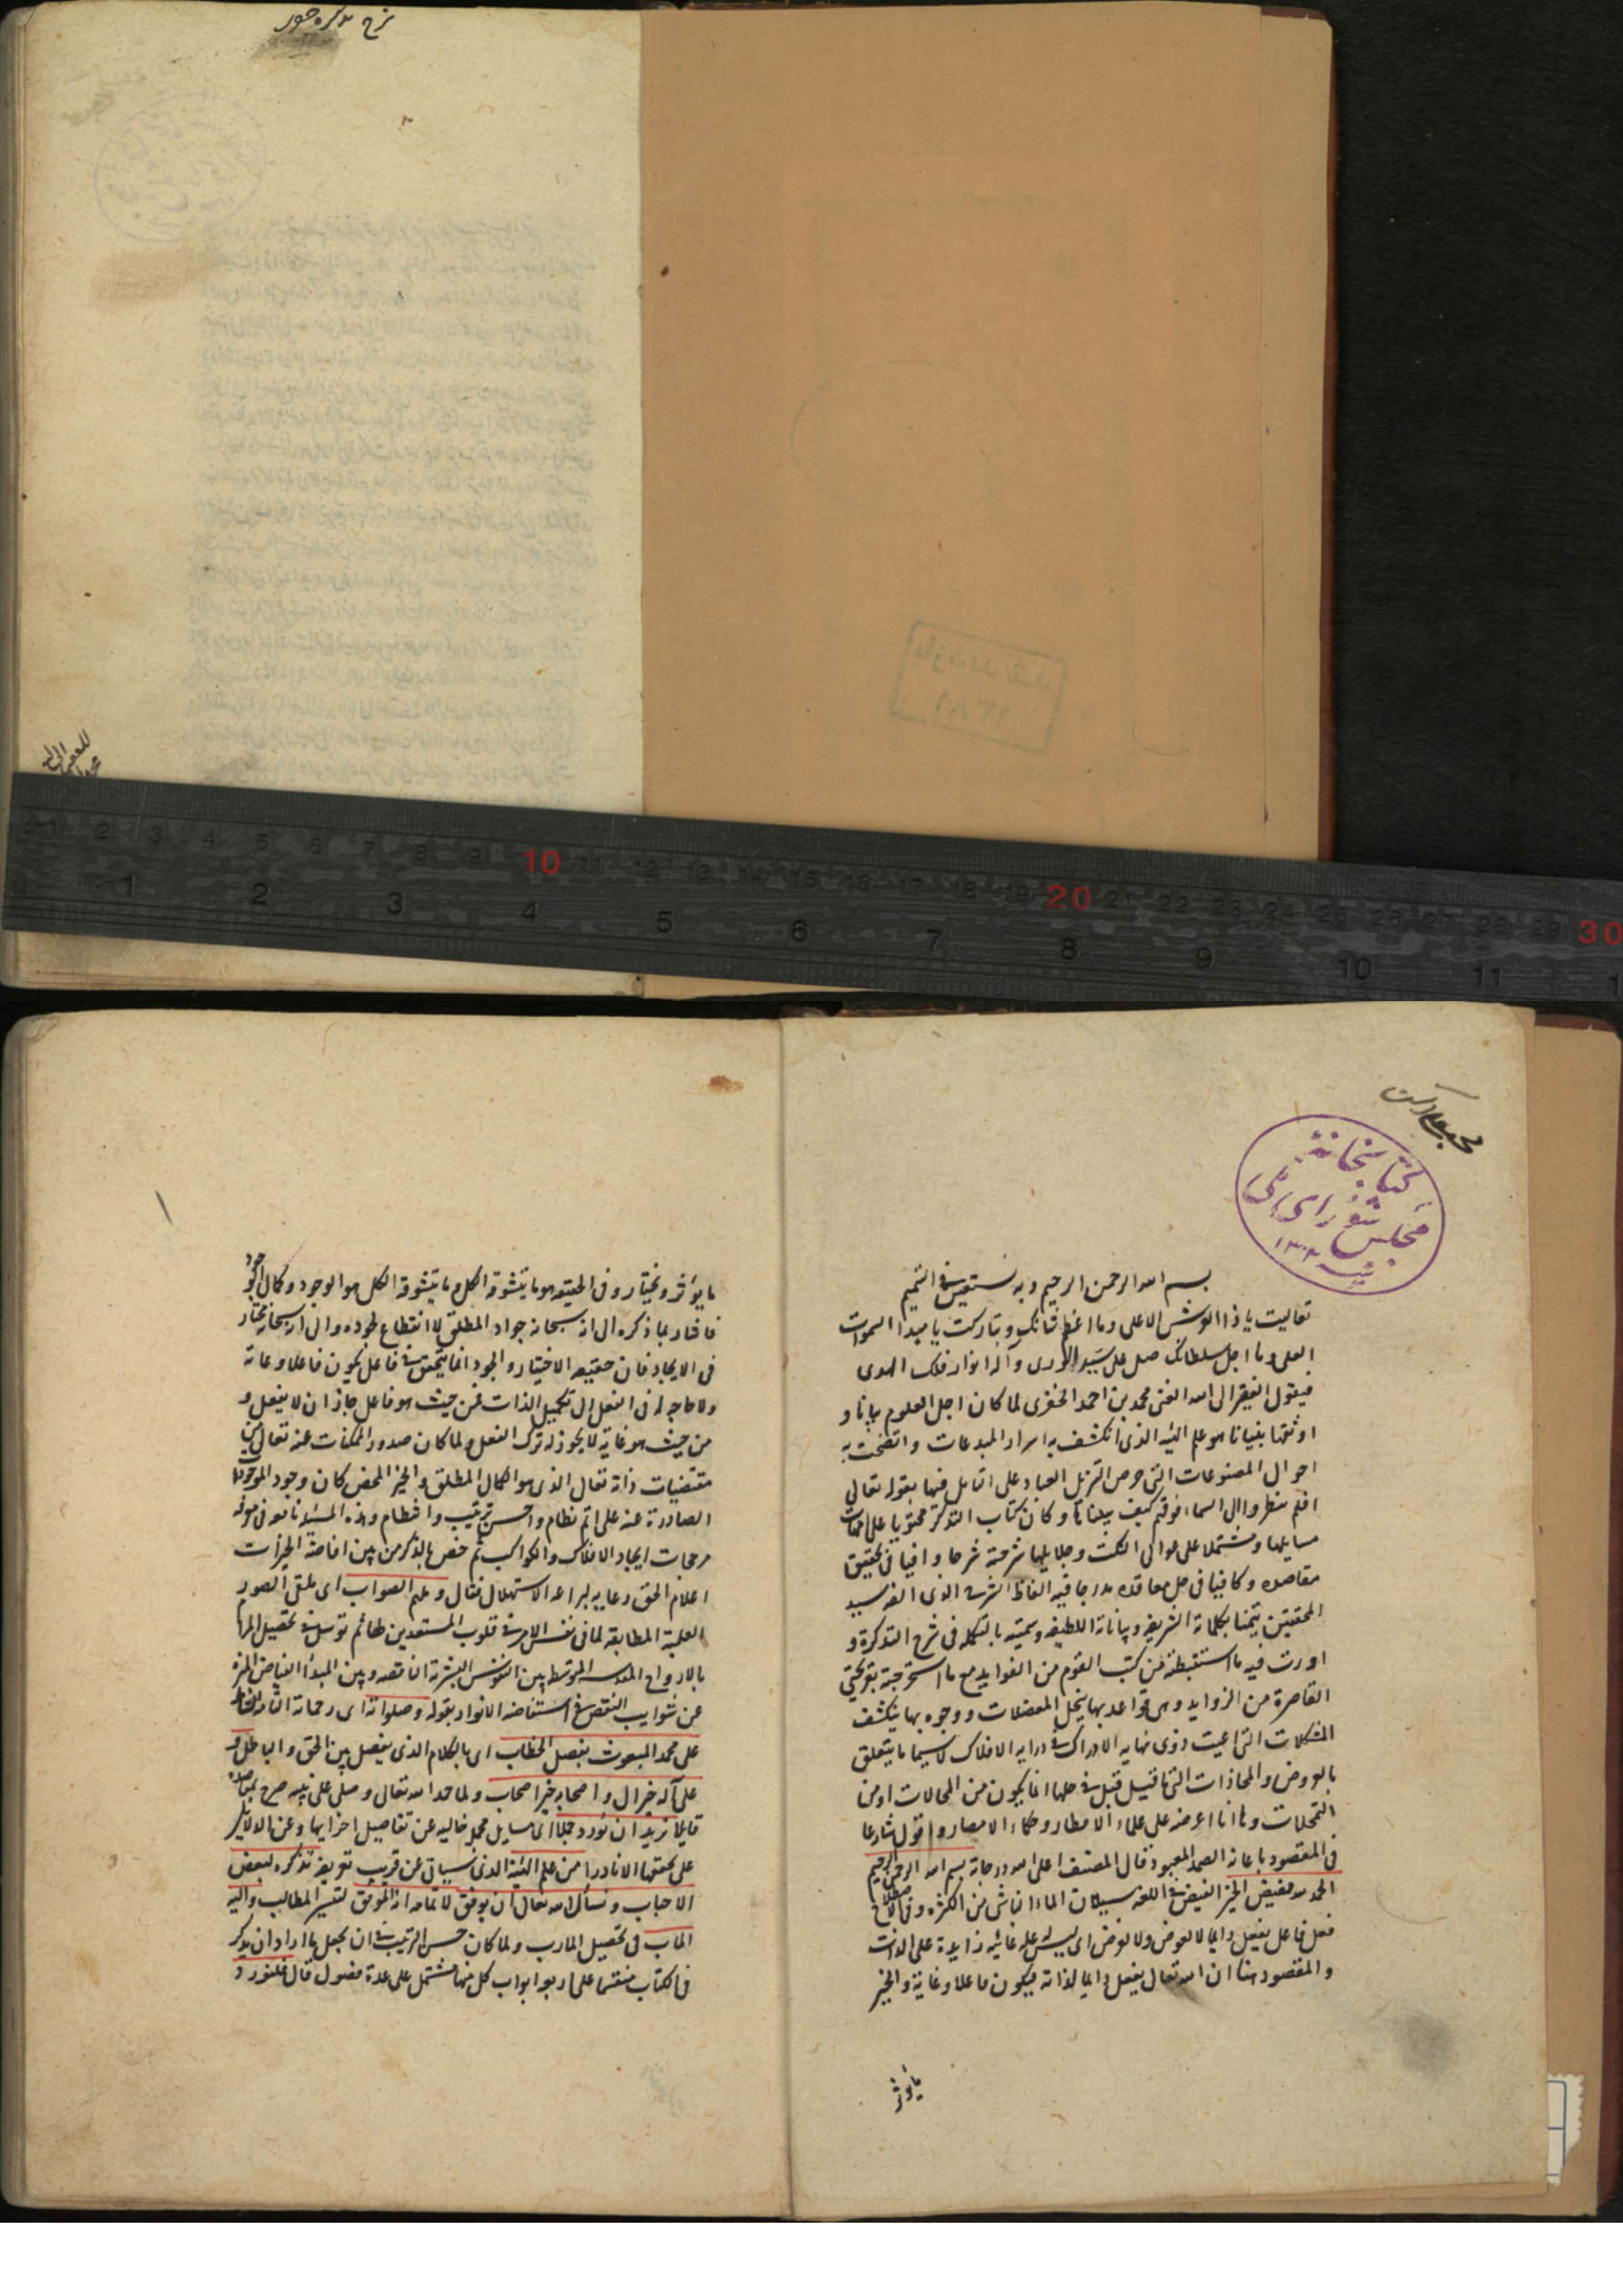 شرح تذكره
1 2 3 4 5 6 7 8 9 10 11 12 13 14 15 16 17 18 19 20 21 22 23 24 25 26 27 28 29 30
1 2 3 4 5 6 7 8 9 10 11
كتابخانهٔ
مجلس شورای ملی
بسم الله الرحمن الرحيم وبه نستعين في التتميم
تعاليت يا ذا العرش الاعلى وما اعظم شانك وتباركت يا مبدا السموات
العلى وما اجل سلطانك صل على سيد الورى وآله انوار فلك الهدى
فيقول الفقير الى الله الغنى محمد بن احمد الخفرى لما كان اجل العلوم بيانا و
اوثقها بنيانا هو علم الهيئه الذى انكشف به اسرار المبدعات واتضحت به
احوال المصنوعات التى حرص التنزيل العباد على التامل فيها بقوله تعالى
افلم ينظروا الى السماء فوقهم كيف بنيناها وكان كتاب التذكرة محتويا على مهمات
مسايلها ومشتملا على عوالى النكت وجلايلها شرحته شرحا وافيا فى تحقيق
مقاصده وكافيا فى حل معاقده مدرجا فيه الفاظ الشرح الذى الفه سيد
المحققين تيمنا بكلماته الشريفه وبياناته اللطيفه وسميته بالتكمله فى شرح التذكرة و
اوردت فيه ما استنبطته من كتب القوم من الفوايد مع ما استخرجته بقريحتى
القاصرة من الزوايد وهى قواعد بها ينحل المعضلات ووجوه بها ينكشف
المشكلات التى اعيت ذوى نهايه الادراك فى درايه الافلاك لا سيما ما يتعلق
بالعروض والمحاذات التى قيل فى حلها انما يكون من المحالات او من
التمحلات وها انا اعرضه على علماء الاقطار وحكماء الامصار واقول شارعا
فى المقصود باعانة الصمد المعبود قال المصنف اعلى الله درجاته بسم الله الرحمن الرحيم
الحمد لله مفيض الخير الفيض فى اللغه سيلان الماء الناشى من الكثره وفى الاصطلاح
فعل فاعل يفعل دايما لا لعوض ولا لغرض اى ليس له علة غائيه زايدة على الذات
والمقصود هنا ان الله تعالى يفعل دايما لذاته فيكون فاعلا وغاية والخير
ما يؤثر
ما يؤثر ويختار وفى الحقيقه هو ما يتشوقه الكل وما يتشوقه الكل هو الوجود وكمال الوجود
فاشار بما ذكره الى انه سبحانه جواد المطلق لا انقطاع لجوده والى انه سبحانه مختار
فى الايجاد فان حقيقه الاختيار والجود انما يتحقق فى فاعل يكون فاعلا وغاية
ولا حاجة له فى الفعل الى تكميل الذات فمن حيث هو فاعل جاز ان لا يفعل و
من حيث هو غاية لا يجوز له ترك الفعل ولما كان صدور الممكنات عنه تعالى من
مقتضيات ذاته تعالى الذى هو الكمال المطلق والخير المحض كان وجود الموجودات
الصادرة عنه على اتم نظام واحسن ترتيب وانتظام وهذه المسئله نافعه فى معرفه
مرجحات ايجاد الافلاك والكواكب ثم خص بالذكر من بين افاضة الخيرات
اعلام الحق رعايه لبراعه الاستهلال فقال وملهم الصواب اى ملقى الصور
العلمية المطابقه لما فى نفس الامر فى قلوب المستعدين طالبهم توسل فى تحصيل المرام
بالارواح المقدسه المتوسطه بين النفوس البشرية الناقصه وبين المبدأ الفياض المنزه
عن شوايب النقص فى استفاضه الانوار بقوله وصلواته اى رحماته
على محمد المبعوث بفصل الخطاب اى بالكلام الذى يفصل بين الحق والباطل و
على آله خير آل واصحابه خير اصحاب ولما حمد الله تعالى وصلى على نبيه صرح بمقاصده
قايلا نريد ان نورد جملا اى مسايل مجمله خاليه عن تفاصيل اجزايها وعن الدلايل
على صحتها الا نادرا من علم الهيئة الذى سياتى عن قريب تعريفه تذكره لبعض
الاحباب ونسأل الله تعالى ان يوفق لاتمامه انه الموفق لتيسير المطالب واليه
المآب فى تحصيل المارب ولما كان حسن الترتيب فى ان يجعل ما اراد ان يذكر
فى الكتاب منقسما على اربعه ابواب كل منها مشتمل على عدة فصول قال فلنورد